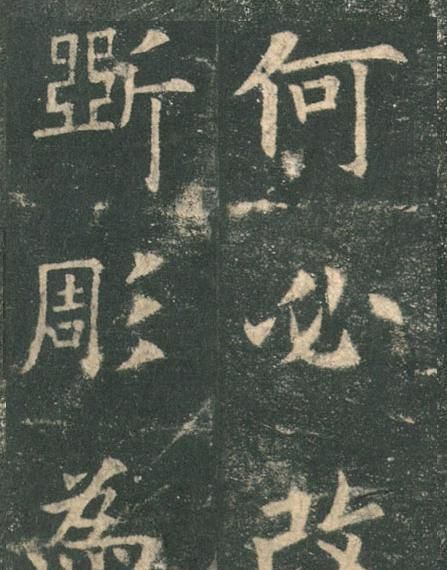 何必改
斲彫為